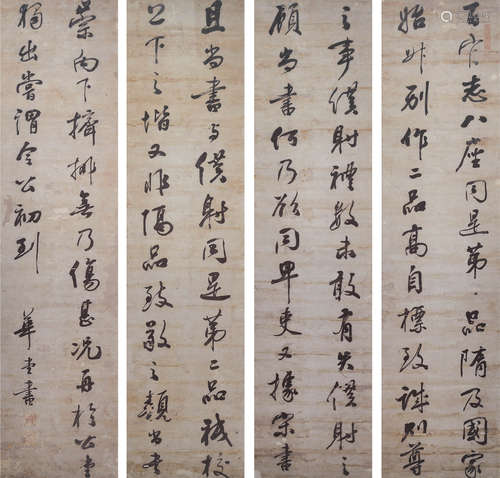 百官志八座同是第一品隋及國家
始升別作二品高自標致誠則尊
之事僕射禮數未敢有失僕射之
顧尚書何乃欲同卑吏又據宋書
且尚書與僕射同是第二品祗校
上下之階又非隔品致敬之類尚書
榮向下擠排無乃傷甚況再於公堂
猥出嘗謂令公初到
華堂書